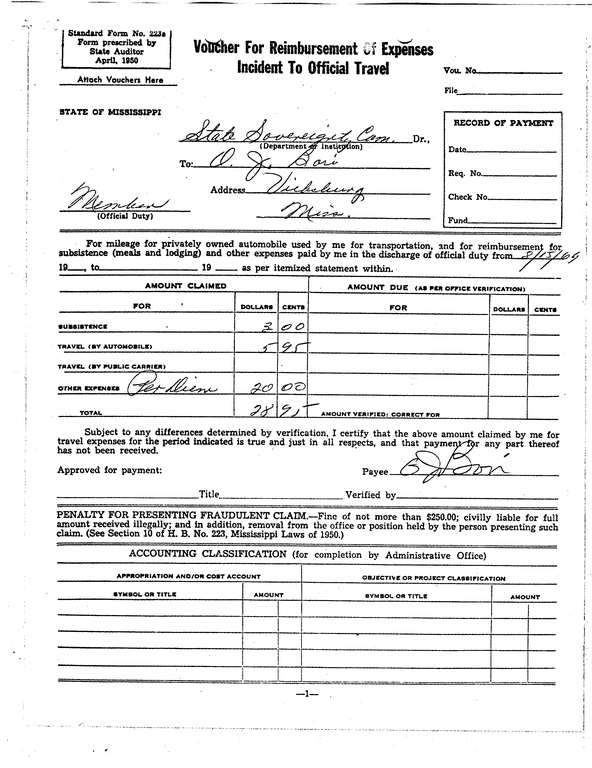 Standard Form No. 223a
Form prescribed by
State Auditor
April, 1950
Attach Vouchers Here
Voucher For Reimbursement Of Expenses
Incident To Official Travel
Vou. No.
File
STATE OF MISSISSIPPI
State Sovereignty Com. Dr.,
(Department or Institution)
To: O. J. Bori
Address Vicksburg
Miss.
Member
(Official Duty)
RECORD OF PAYMENT
Date
Req. No.
Check No.
Fund
For mileage for privately owned automobile used by me for transportation, and for reimbursement for
subsistence (meals and lodging) and other expenses paid by me in the discharge of official duty from
19___, to___ 19___ as per itemized statement within.
AMOUNT CLAIMED AMOUNT DUE (AS PER OFFICE VERIFICATION)
FOR DOLLARS CENTS FOR DOLLARS CENTS
SUBSISTENCE 3 00
TRAVEL (BY AUTOMOBILE) 5 95
TRAVEL (BY PUBLIC CARRIER)
OTHER EXPENSES (Per Diem 20 00
TOTAL 28 95 AMOUNT VERIFIED: CORRECT FOR
Subject to any differences determined by verification, I certify that the above amount claimed by me for
travel expenses for the period indicated is true and just in all respects, and that payment for any part thereof
has not been received.
Approved for payment: Payee O J Bori
Title Verified by
PENALTY FOR PRESENTING FRAUDULENT CLAIM.—Fine of not more than $250.00; civilly liable for full
amount received illegally; and in addition, removal from the office or position held by the person presenting such
claim. (See Section 10 of H. B. No. 223, Mississippi Laws of 1950.)
ACCOUNTING CLASSIFICATION (for completion by Administrative Office)
APPROPRIATION AND/OR COST ACCOUNT OBJECTIVE OR PROJECT CLASSIFICATION
SYMBOL OR TITLE AMOUNT SYMBOL OR TITLE AMOUNT
—1—